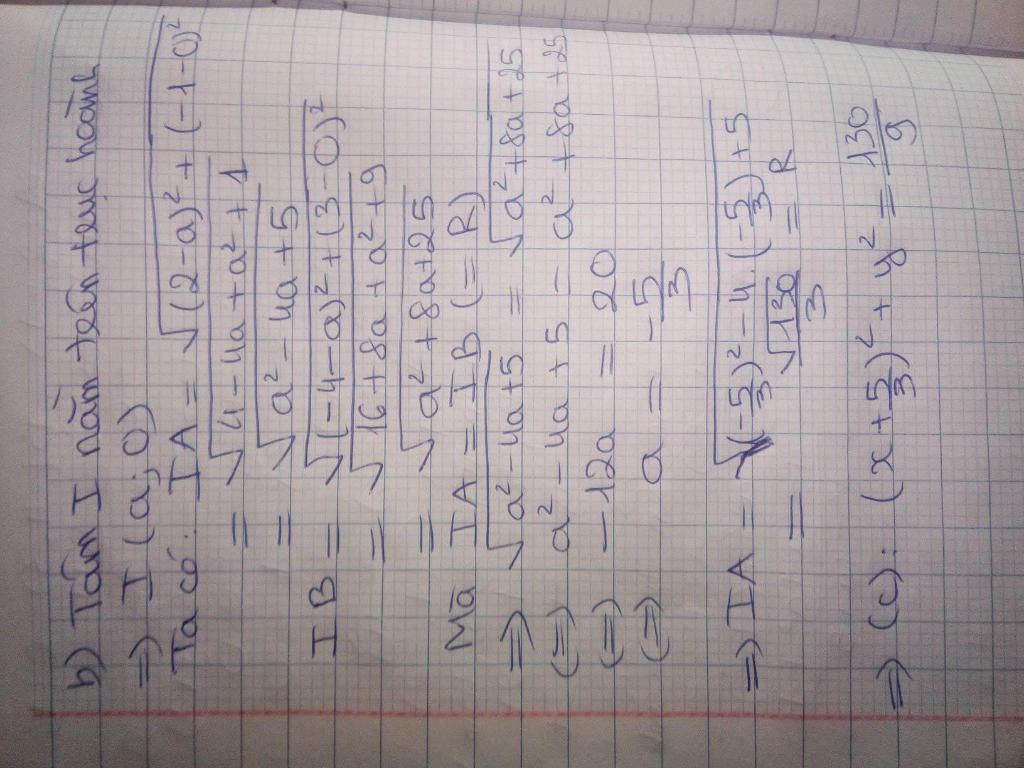 b) Tâm I nằm trên trục hoành
=> I (a; 0)
Ta có: IA = √(2-a)² + (-1-0)²
= √4 - 4a + a² + 1
= √a² - 4a + 5
IB = √(-4-a)² + (3-0)²
= √16 + 8a + a² + 9
= √a² + 8a + 25
Mà IA = IB (= R)
=> √a² - 4a + 5 = √a² + 8a + 25
(=) a² - 4a + 5 - a² + 8a + 25
(=) -12a = 20
(=) a = -5/3
=> IA = √(-5/3)² - 4.(-5/3) + 5
= √130/3 = R
=> (C): (x + 5/3)² + y² = 130/9